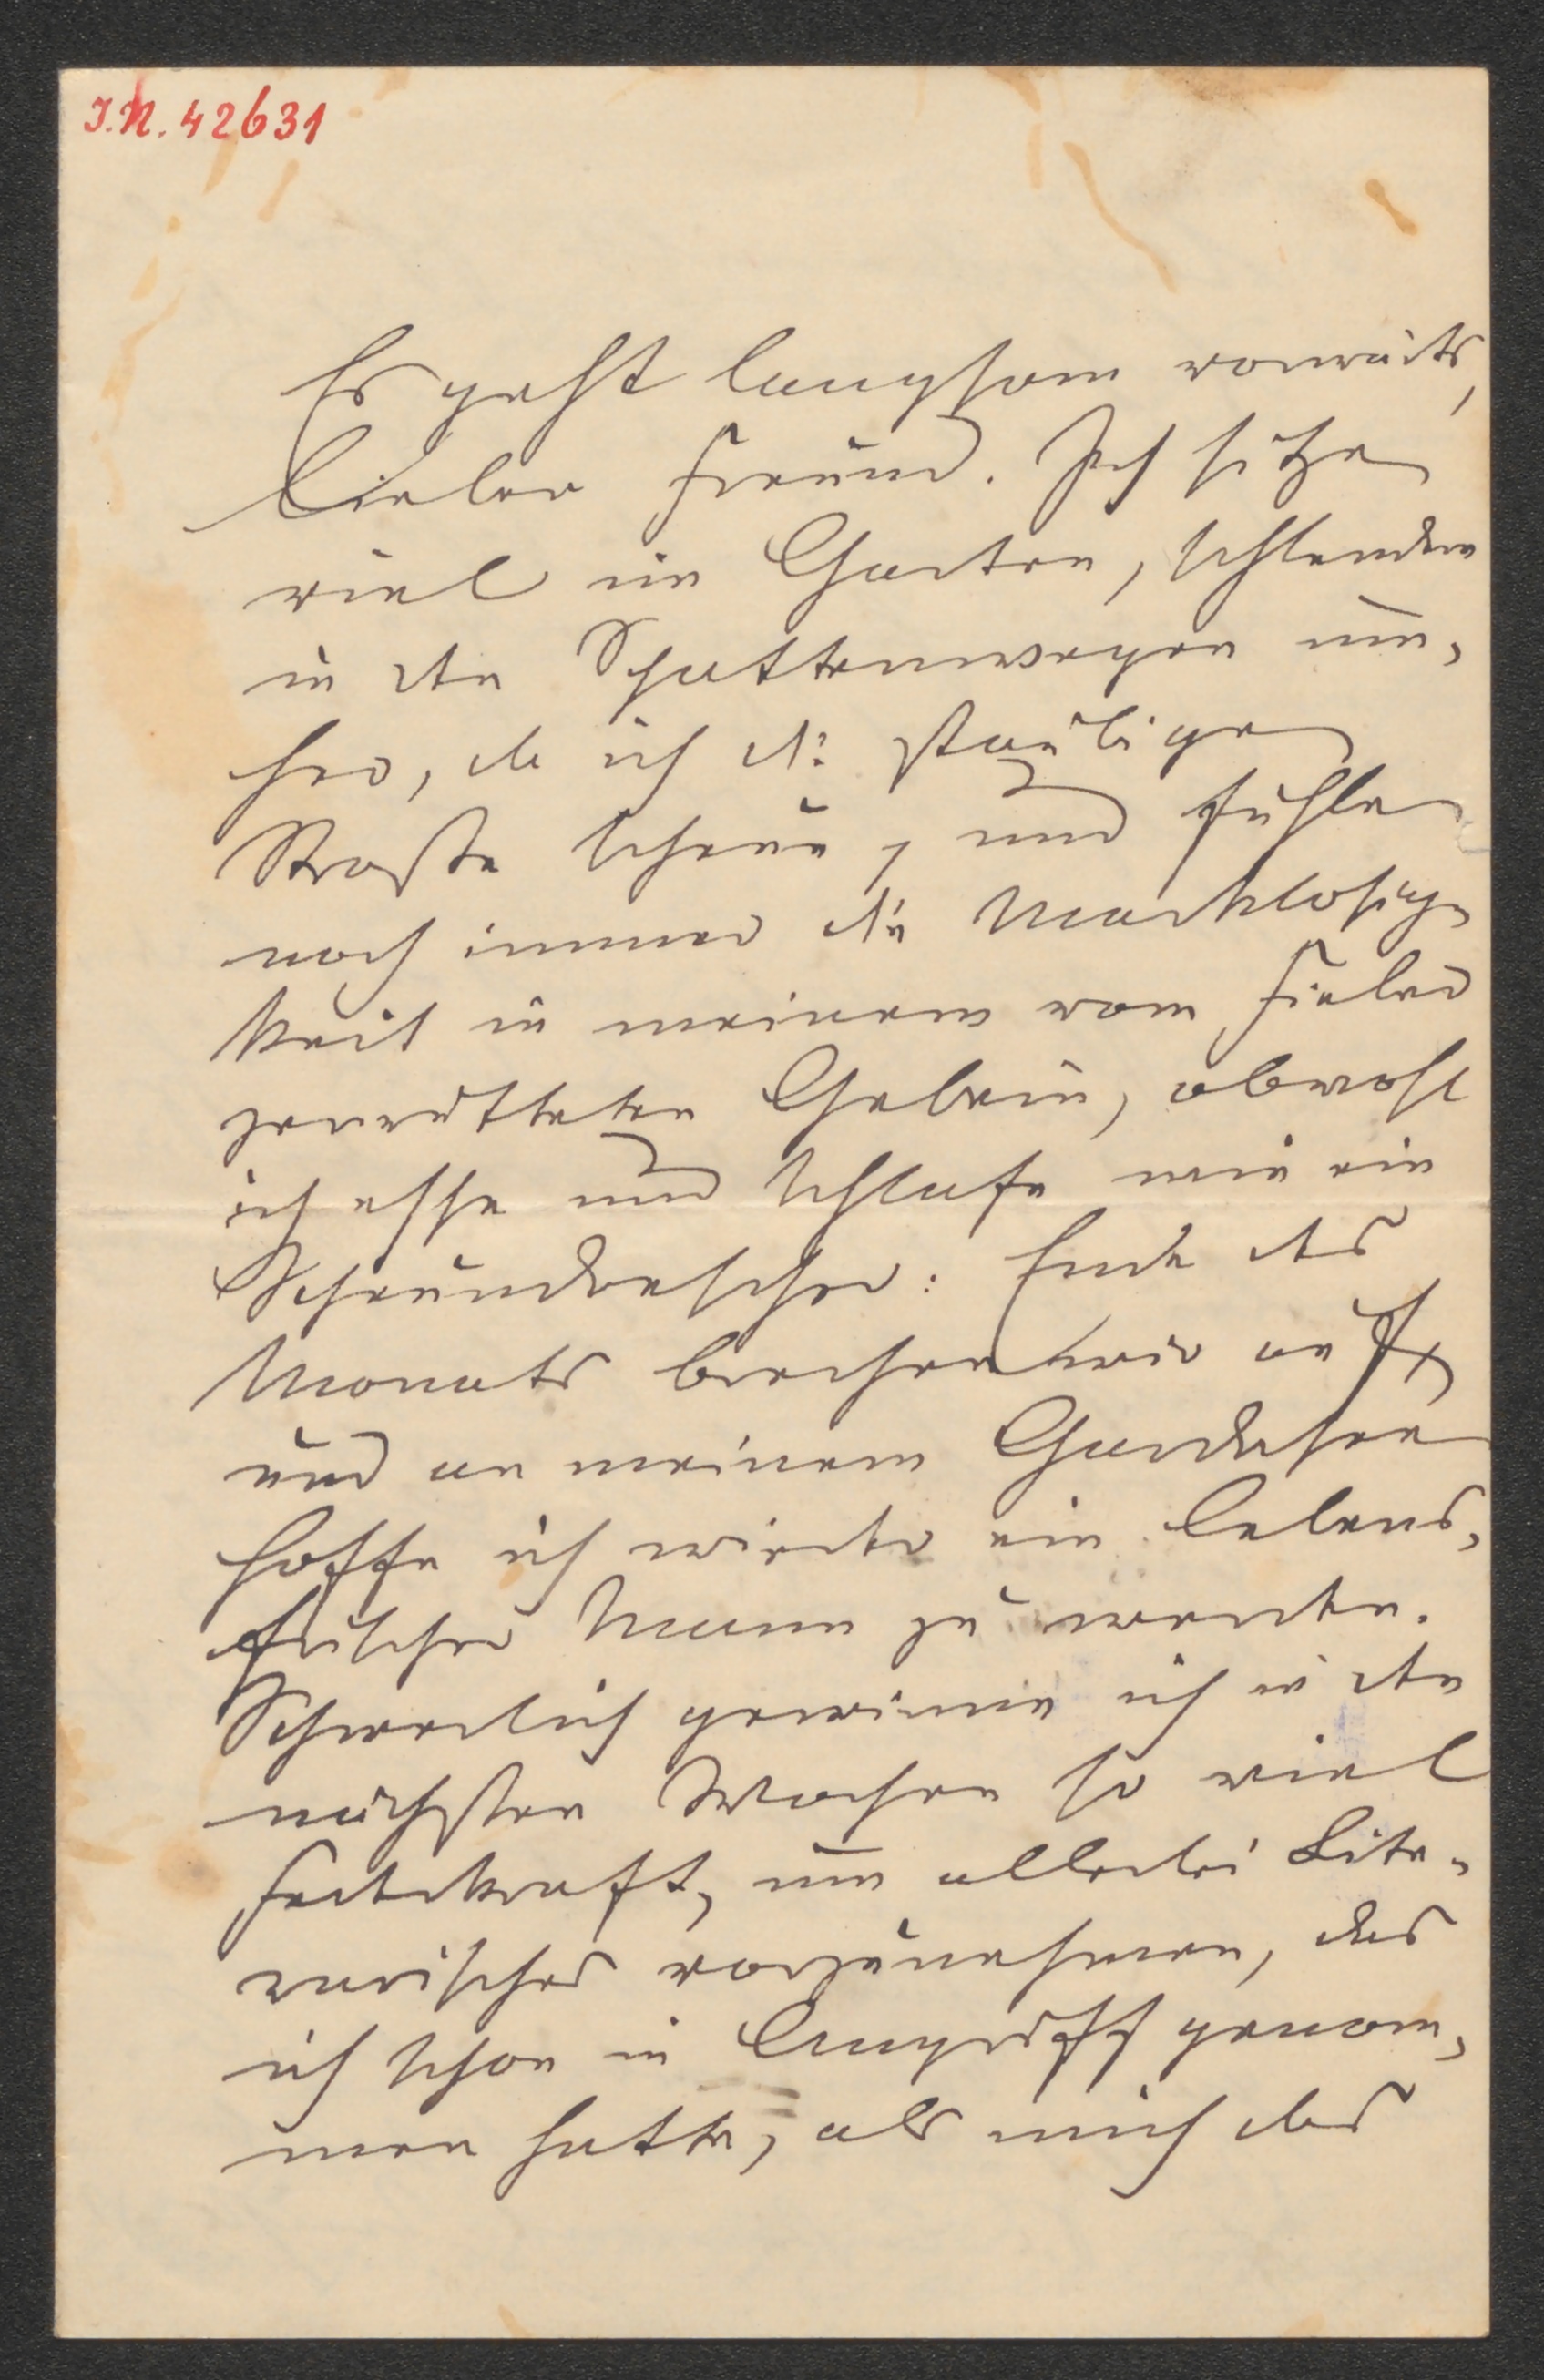 I.N. 42631
Es geht langsam vorwärts,
lieber Freund. Ich sitze
viel im Garten, schlendre
in den Schattenwegen um-
her, da ich die staubige
Straße scheue, und fühle
noch immer die Marklosig-
keit in meinem vom Fieber
zerrütteten Gebein, obwohl
ich esse und schlafe wie ein
Scheundrescher: Ende des
Monats brechen wir auf
und an meinem Gardasee
hoffe ich wieder ein lebens-
frischer Mann zu werden.
Schwerlich gewinne ich in den
nächsten Wochen so viel
Federkraft, um allerlei Lite-
rarisches vorzunehmen, das
ich schon in Angriff genom-
men hatte, als mich das